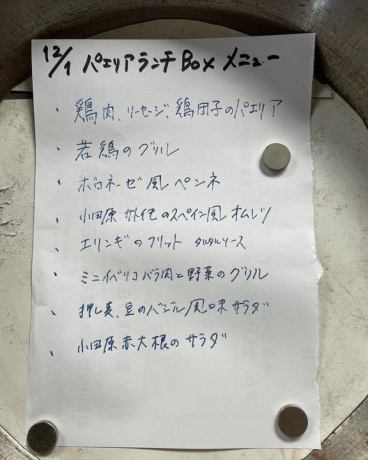 12/1 パエリアランチBOX メニュー
・鶏肉、ソーセージ、鶏団子のパエリア
・若鶏のグリル
・ボロネーゼ風ペンネ
・小田原 のスペイン風オムレツ
・エリンギのフリット タルタルソース
・ミニイベリコバラ肉と野菜のグリル
・押し麦、豆のバジル風味サラダ
・小田原赤大根のサラダ